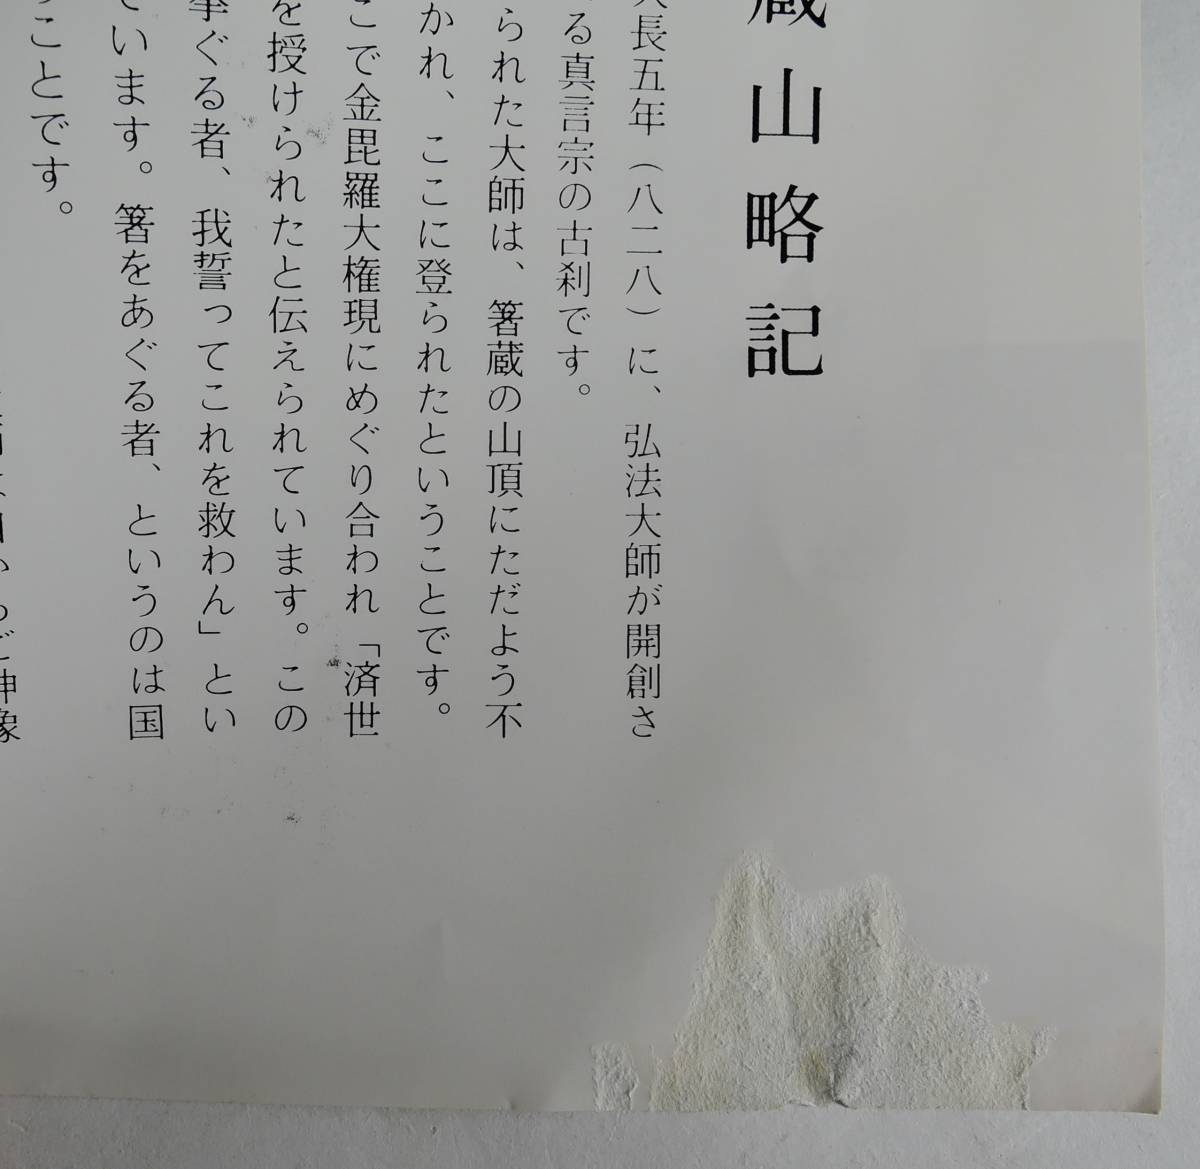 蔵山略記
長五年（八二八）に、弘法大師が開創さ
る真言宗の古刹です。
られた大師は、箸蔵の山頂にただよう不
かれ、ここに登られたということです。
こで金毘羅大権現にめぐり合われ「済世
を授けられたと伝えられています。この
挙ぐる者、我誓ってこれを救わん」とい
ています。箸をあぐる者、というのは国
ことです。